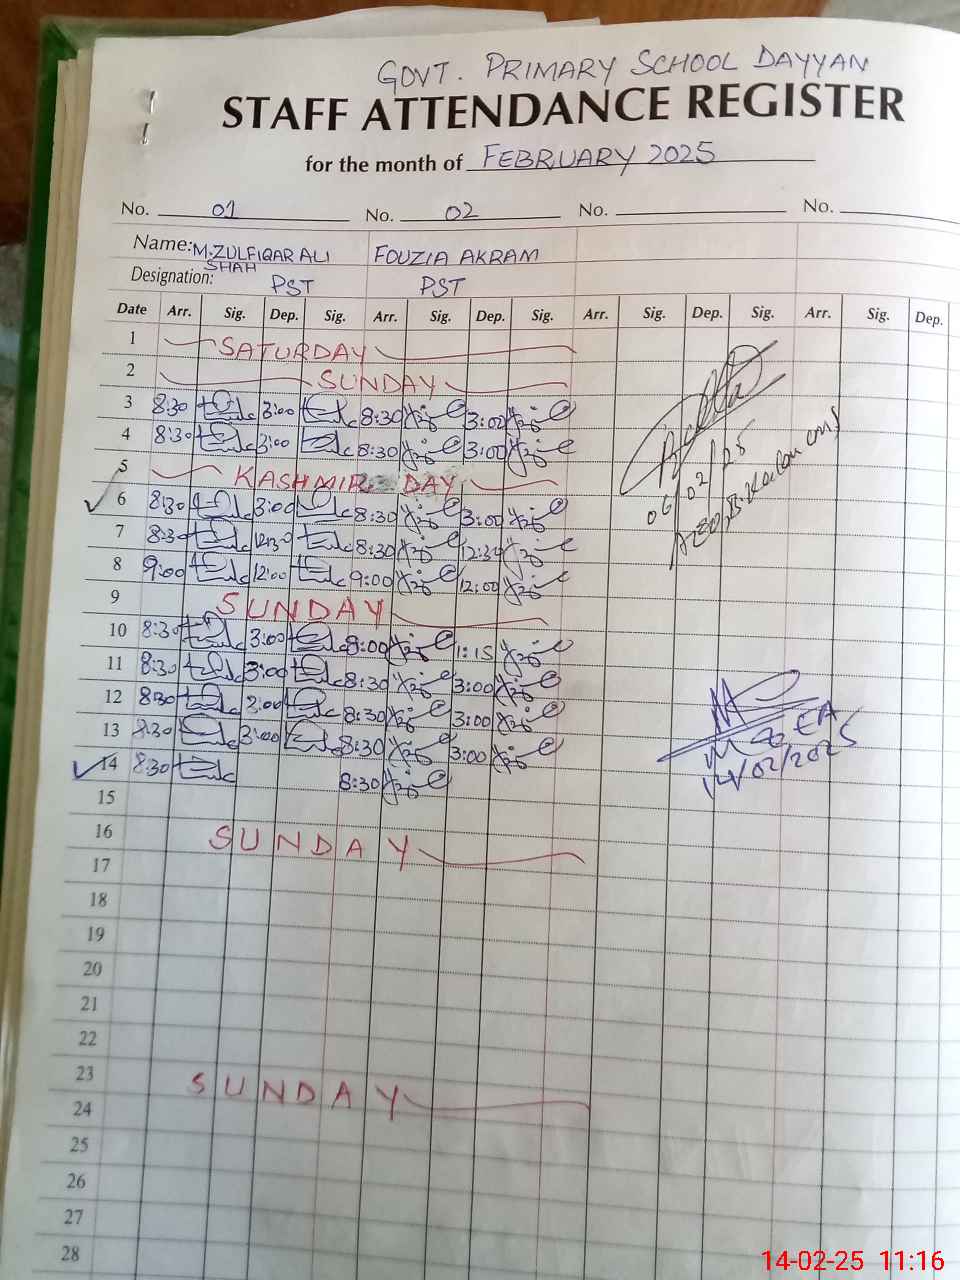 GOVT. PRIMARY SCHOOL DAYYAN
STAFF ATTENDANCE REGISTER
for the month of FEBRUARY 2025
No. 01 No. 02 No. No.
Name: M.ZULFIQAR ALI SHAH FOUZIA AKRAM
Designation: PST PST
Date Arr. Sig. Dep. Sig. Arr. Sig. Dep. Sig. Arr. Sig. Dep. Sig. Arr. Sig. Dep.
1 SATURDAY
2 SUNDAY
3 8:30 3:00 8:30 3:02
4 8:30 3:00 8:30 3:00
5 KASHMIR DAY
6 8:30 3:00 8:30 3:00
7 8:30 12:30 8:30
8 9:00 12:00 9:00 12:00
9 SUNDAY
10 8:30 3:00 8:00 1:15
11 8:30 3:00 8:30 3:00
12 8:30 3:00 8:30 3:00
13 8:30 3:00 8:30 3:00
14 8:30 8:30
15
16 SUNDAY
17
18
19
20
21
22
23 SUNDAY
24
25
26
27
28
06/02/25
14/02/2025
14-02-25 11:16